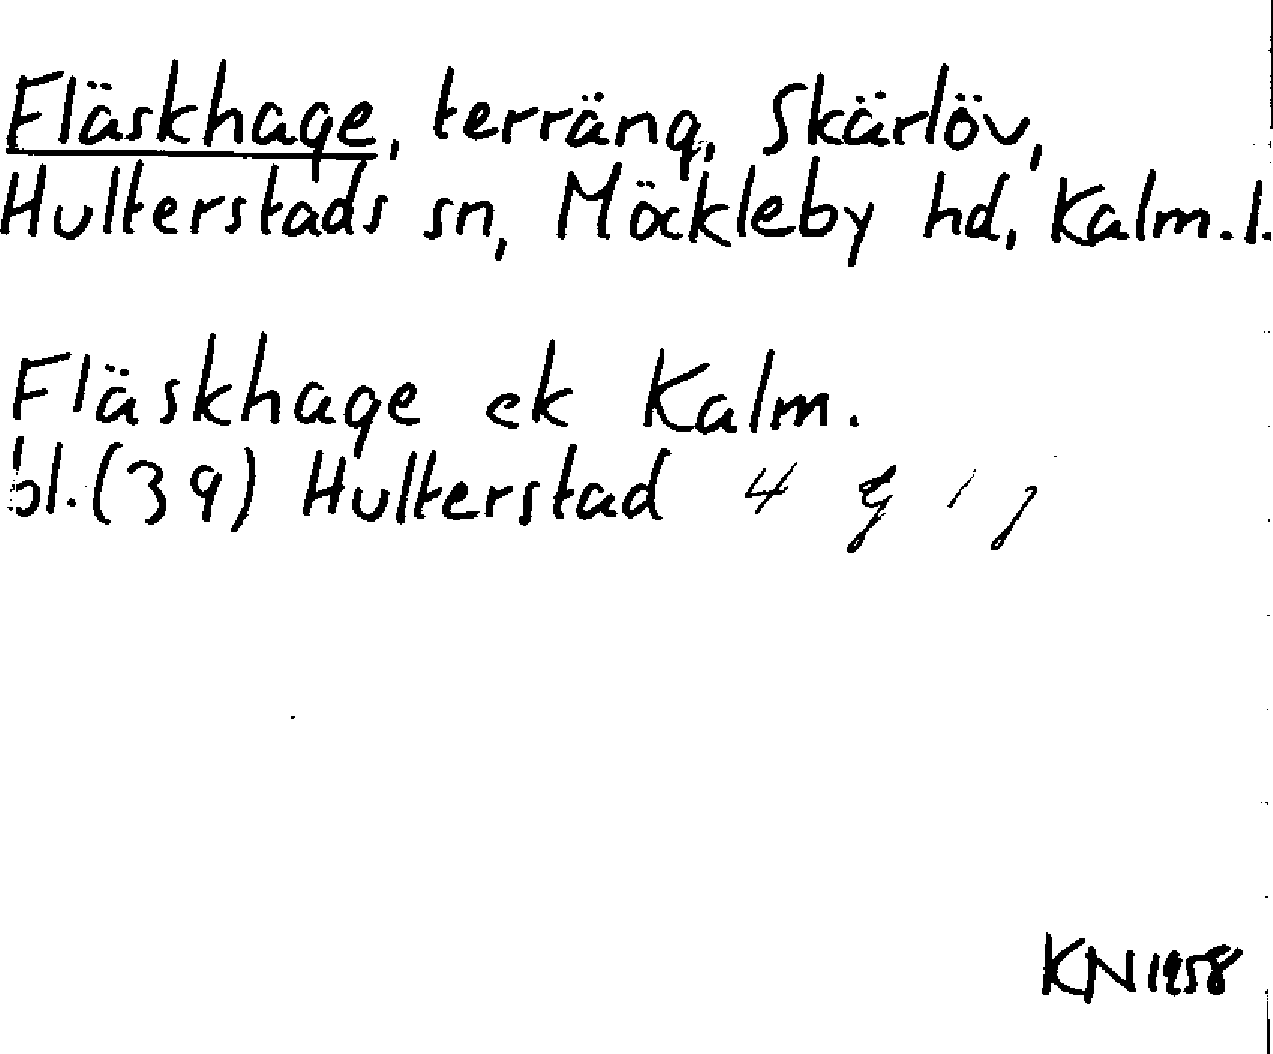 Fläskhage, terräng, Skärlöv,
Hulterstads sn, Möckleby hd, Kalm.l.
Fläskhage ek Kalm.
bl.(39) Hulterstad 4
KN1958